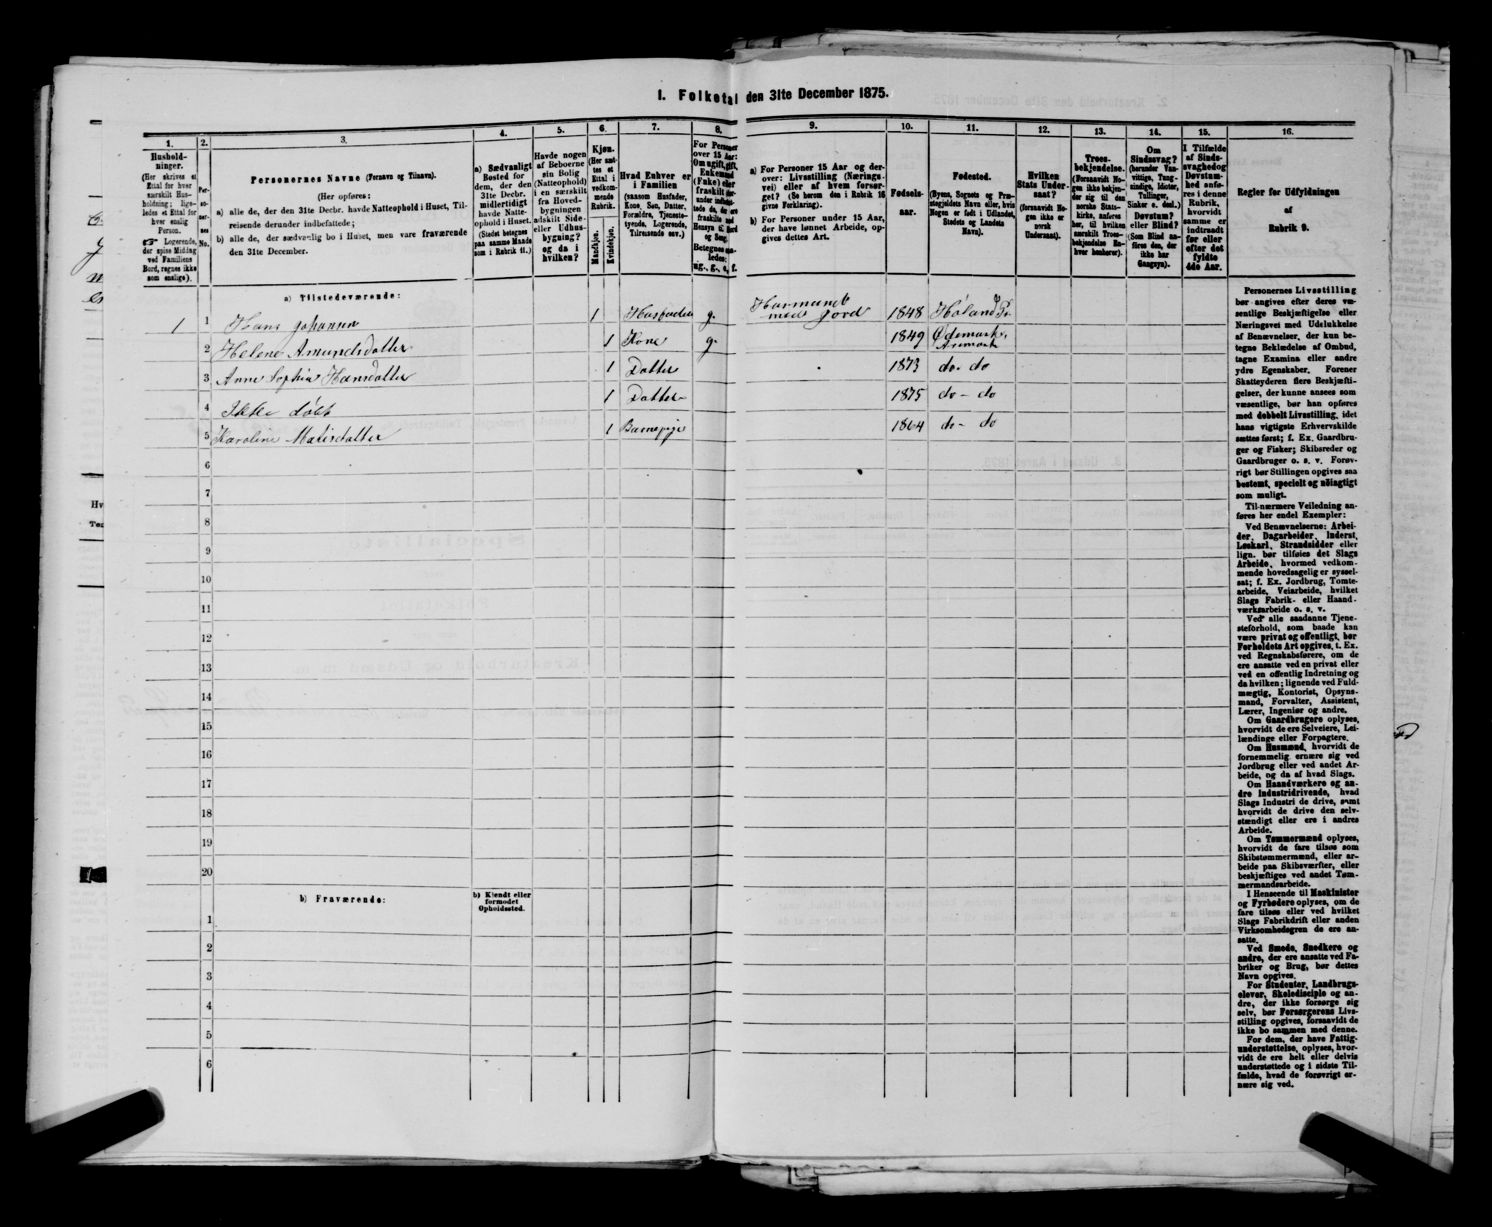 I. Folketal den 31te December 1875.
1.
2.
3.
4.
5.
6.
7.
8.
9.
10.
11.
12.
13.
14.
15.
16.
Hushold-
ninger.
(Her skrives et
Ettal for hver
særskilt Hus-
holdning; lige-
ledes et Ettal for
hver enslig
Person.
☞ Logerende,
der spise Middag
ved Familiens
Bord, regnes ikke
som enslige).
Per-
so-
ner-
nes
No.
Personernes Navne (Fornavn og Tilnavn).
(Her opføres:
a) alle de, der den 31te Decbr. havde Natteophold i Huset, Til-
reisende derunder indbefattede;
b) alle de, der sædvanlig bo i Huset, men vare fraværende
den 31te December.
a) Sædvanligt
Bosted for
dem, der den
31te Decbr.
midlertidigt
havde Natte-
ophold i Huset.
(Stedet betegnes
paa samme Maade
som i Rubrik 11.)
Havde nogen
af Beboerne
sin Bolig
(Natteophold)
i en særskilt
fra Hoved-
bygningen
adskilt Side-
eller Udhus-
bygning?
og da i
hvilken?
Kjøn.
(Her sæt-
tes et
Ettal i
vedkom-
mende
Rubrik.
Mandkjøn.
Kvindekjøn.
Hvad Enhver er
i Familien
(saasom Husfader,
Kone, Søn, Datter,
Forældre, Tjeneste-
tyende, Logerende,
Tilreisende osv.)
For Personer
over 15 Aar:
Om ugift, gift,
Enkemand
(Enke) eller
fraskilt
Betegnes saa-
ledes:
ug., g., e, f.
a) For Personer 15 Aar og der-
over: Livsstilling (Nærings-
vei) eller af hvem forsør-
get? (Se herom den i Rubrik 16
givne Forklaring).
b) For Personer under 15 Aar,
der have lønnet Arbeide, op-
gives dettes Art.
Fødsels-
aar.
Fødested.
(Byens, Sognets og Præ-
stegjeldets Navn eller, hvis
Nogen er født i Udlandet,
Stedets og Landets
Navn).
Hvilken
Stats Under-
saat?
(forsaavidt No-
gen ikke er
norsk
Undersaat).
Troes-
bekjendelse.
(Forsaavidt No-
gen ikke bekjen-
der sig til den
norske Stats-
kirke, anføres
her, til hvilken
særskilt Troes-
bekjendelse En-
hver henhører).
Om
Sindssvag?
(herunder Van-
vittige, Tung-
sindige, Idioter,
Tullinger,
Sinker o. desl.)
Døvstum?
eller Blind?
(Som Blind an-
føres den, der
ikke har
Gangsyn).
I Tilfælde
af Sinds-
svaghed og
Døvstum-
hed anfø-
res i denne
Rubrik,
hvorvidt
samme er
indtraadt
før eller
efter det
fyldte
4de Aar.
Regler for Udfyldningen
af
Rubrik 9.
a) Tilstedeværende:
1 1 Hans Johansen 1 Husfader g. Husmand med Jord 1848 Høland
2 Helene Amundsdatter 1 Kone g. 1849 Ødemark, Aremark
3 Anne Sophia Hansdatter 1 Datter 1873 do - do
4 Ikke døbt 1 Datter 1875 do - do
5 Karoline Matisdatter 1 Barnepige 1864 do - do
6
7
8
9
10
11
12
13
14
15
16
17
18
19
20
b) Fraværende:
b) Kjendt eller
formodet
Opholdssted.
1
2
3
4
5
6
Personernes Livsstilling
bør angives efter deres væ-
sentlige Beskjæftigelse eller
Næringsvei med Udelukkelse
af Benævnelser, der kun be-
tegne Beklædelse af Ombud,
tagne Examina eller andre
ydre Egenskaber. Forener
Skatteyderen flere Beskjæfti-
gelser, der kunne ansees som
væsentlige, bør han opføres
med dobbelt Livsstilling, idet
hans vigtigste Erhvervskilde
sættes først; f. Ex. Gaardbru-
ger og Fisker; Skibsreder og
Gaardbruger o. s. v. Forøv-
rigt bør Stillingen opgives saa
bestemt, specielt og nøiagtigt
som muligt.
Til nærmere Veiledning an-
føres her endel Exempler:
Ved Benævnelserne: Arbei-
der, Dagarbeider, Inderst,
Løskarl, Strandsidder eller
lign. bør tilføies det Slags
Arbeide, hvormed vedkom-
mende hovedsagelig er syssel-
sat; f. Ex. Jordbrug, Tomte-
arbeide, Veiarbeide, hvilket
Slags Fabrik- eller Haand-
værksarbeide o. s. v.
Ved alle saadanne Tjene-
steforhold, som baade kan
være privat og offentligt, bør
Forholdets Art opgives, t. Ex.
ved Regnskabsførere, om de
ere ansatte ved en privat eller
ved en offentlig Indretning og
da hvilken; lignende ved Fuld-
mægtig, Kontorist, Opsyns-
mand, Forvalter, Assistent,
Lærer, Ingeniør og andre.
Om Gaardbrugere oplyses,
hvorvidt de ere Selveiere, Lei-
lændinge eller Forpagtere.
Om Husmænd, hvorvidt de
fornemmelig ernære sig ved
Jordbrug eller ved andet Ar-
beide, og da af hvad Slags.
Om Haandværkere og an-
dre Industridrivende, hvad
Slags Industri de drive, samt
hvorvidt de drive den selv-
stændigt eller ere i andres
Arbeide.
Om Tømmermænd oplyses,
hvorvidt de fare tilsøs som
Skibstømmermænd, eller ar-
beide paa Skibsværfter, eller
beskjæftiges ved andet Tøm-
mermandsarbeide.
I Henseende til Maskinister
og Fyrbødere oplyses, om de
fare tilsøs eller ved hvilket
Slags Fabrikdrift eller anden
Virksomhedsgren de ere an-
satte.
Ved Smede, Snedkere og
andre, der ere ansatte ved Fa-
briker og Brug, bør dettes
Navn opgives.
For Studenter, Landbrugs-
elever, Skoledisciple og an-
dre, der ikke forsørge sig
selv, bør Forsørgerens Livs-
stilling opgives, forsaavidt de
ikke bo sammen med denne.
For dem, der have Fattig-
understøttelse, oplyses, hvor-
vidt de ere helt eller delvis
understøttede og i sidste Til-
fælde, hvad de forøvrigt er-
nære sig ved.